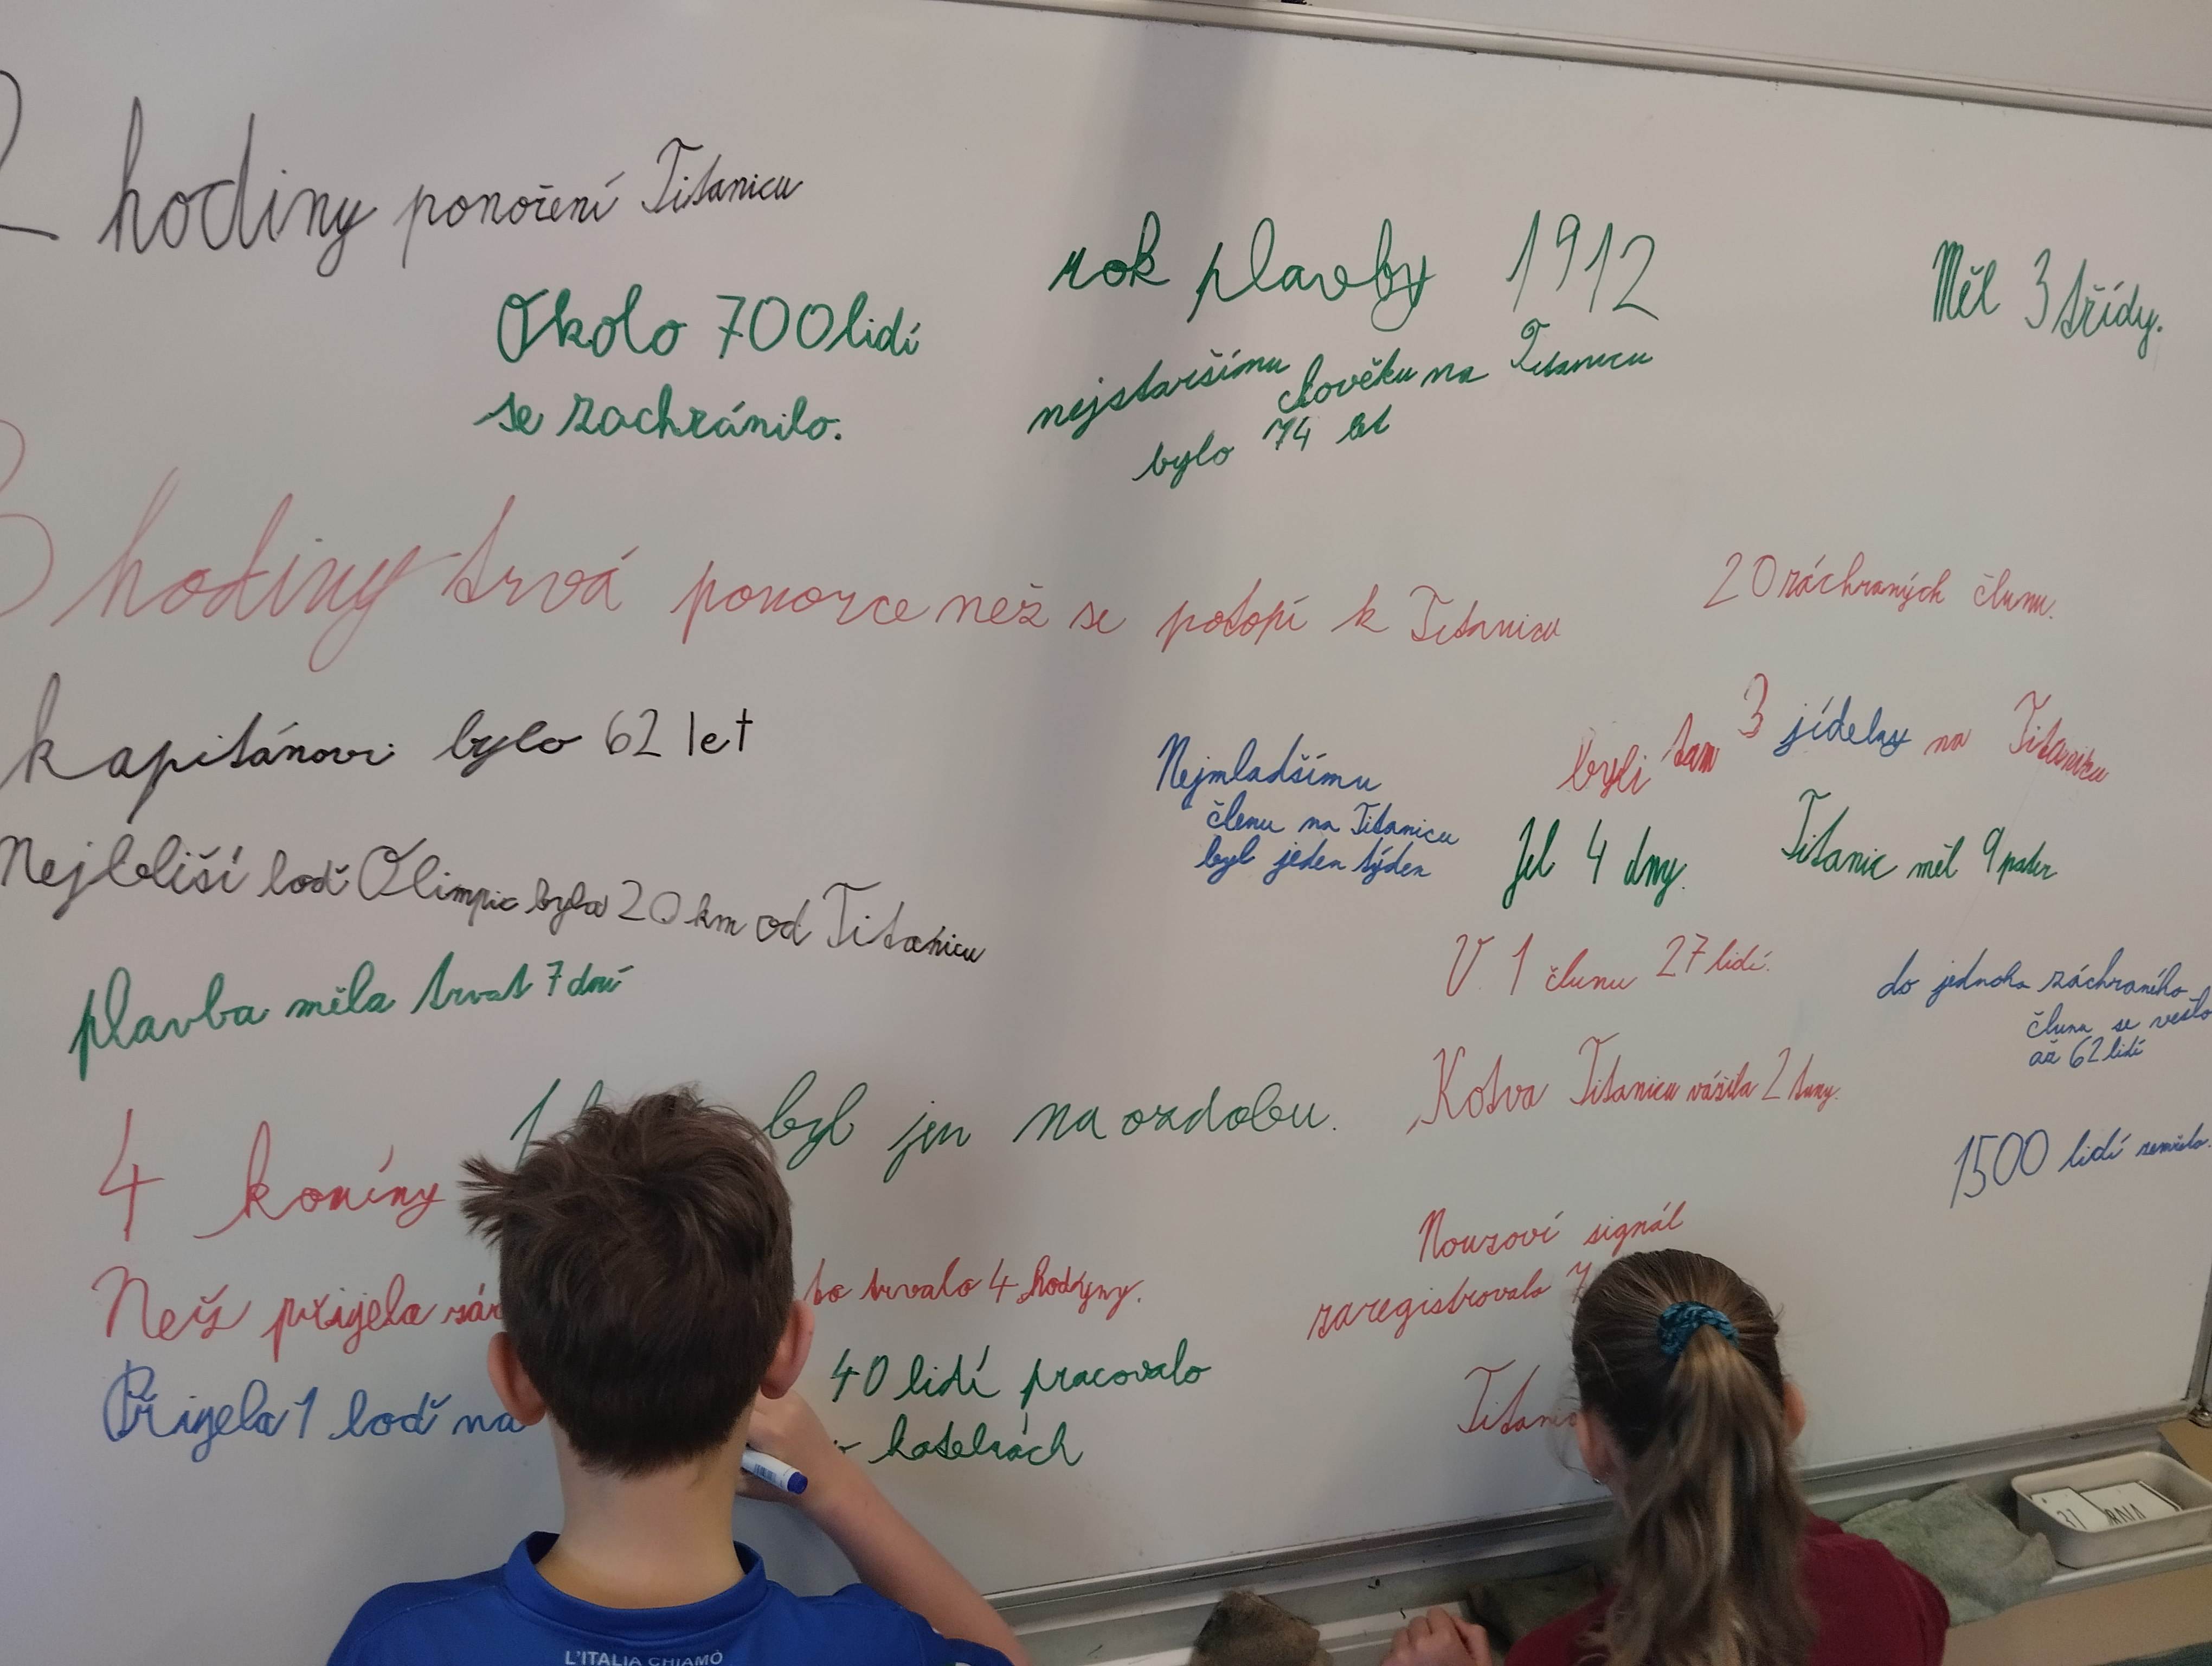 2 hodiny ponoření Titanicu
Okolo 700 lidí
se zachránilo.
rok plavby 1912
nejstaršímu člověku na Titanicu
bylo 74 let
Měl 3 třídy.
3 hodiny trvá ponorce než se potopí k Titanicu
20 záchraných člunu.
kapitánovi bylo 62 let
Nejmladšímu
členu na Titanicu
byl jeden týden
byli tam 3 jídelny na Titaniku
Jel 4 dny.
Titanic měl 9 pater
loď Olimpic byla 20 km od Titanicu
plavba měla trvat 7 dní
V 1 člunu 27 lidí.
do jednoho záchraného
člunu se vešlo
až 62 lidí
4 komíny
byl jen na ozdobu.
Kotva Titanicu vážila 2 tuny.
1500 lidí zemřelo.
Než přijela
to trvalo 4 hodyny.
Nouzoví signál
zaregistrovalo 7
Přijela 1 loď na
40 lidí pracovalo
kotelnách
Titanic
L'ITALIA CHIAMÒ
31